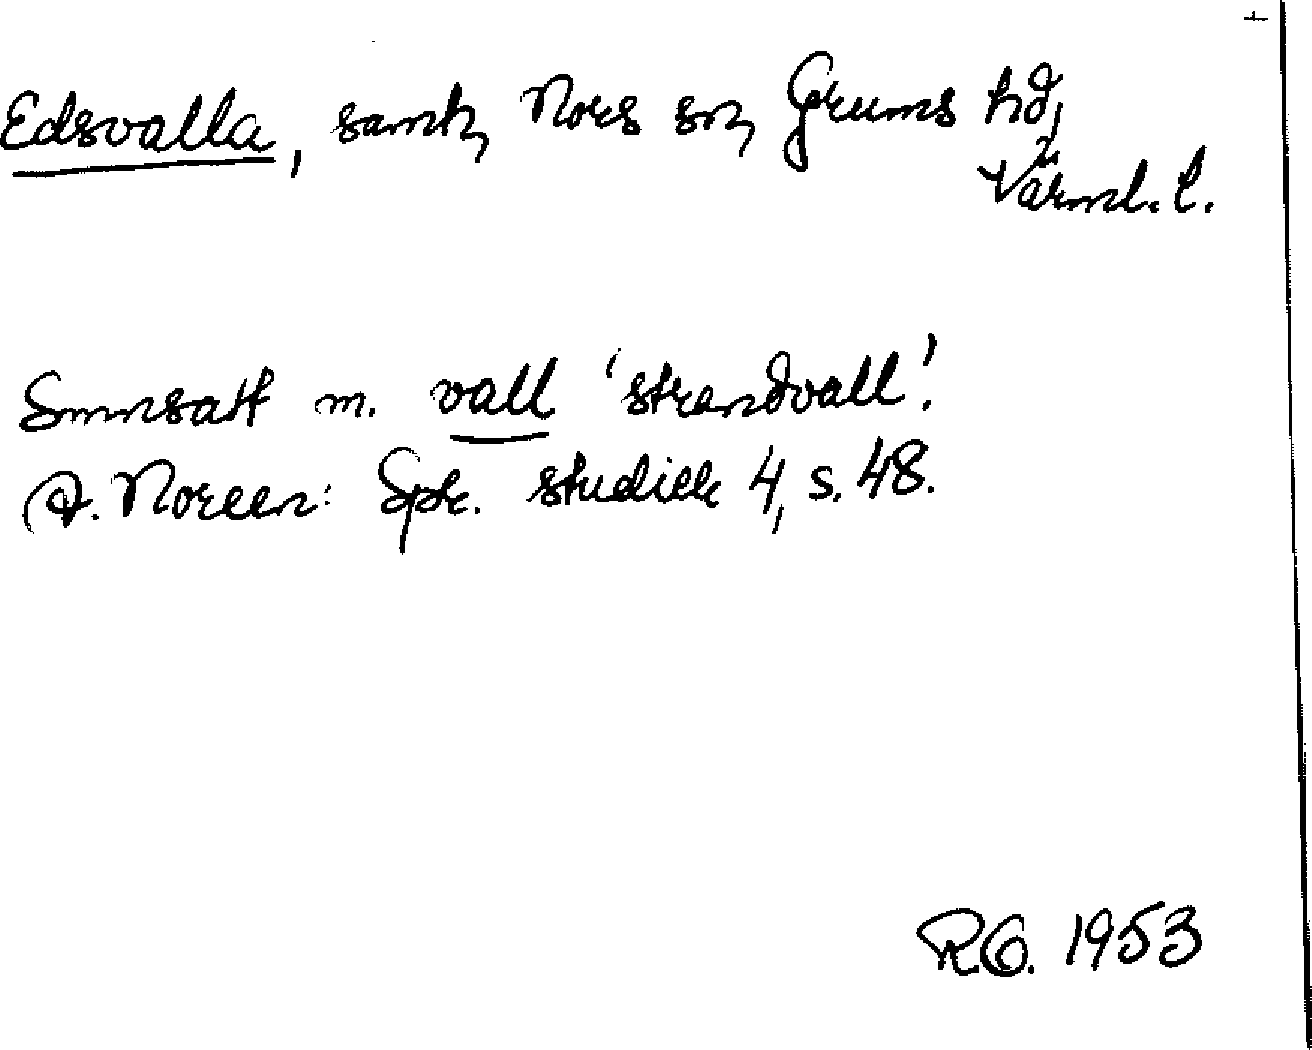 Edsvalla, samh, Nors sn, Grums hd,
Värml. l.
Smnsatt m. vall 'strandvall'.
A. Noreen: Spr. studier 4, s. 48.
R.O. 1953